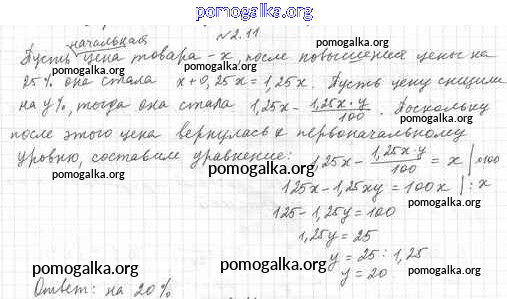 pomogalka.org
№2.11
начальная
Пусть цена товара - x, после повышения цены на
pomogalka.org pomogalka.org
25% она стала x+0,25x=1,25x. Пусть цену снизили
на y%, тогда она стала 1,25x - 1,25x·y/100. Поскольку
pomogalka.org pomogalka.org
после этого цена вернулась к первоначальному
уровню, составим уравнение: 1,25x - 1,25x·y/100 = x |·100
pomogalka.org
125x - 1,25xy = 100x | : x
pomogalka.org pomogalka.org
125 - 1,25y = 100
1,25y = 25
y = 25 : 1,25
pomogalka.org pomogalka.org pomogalka.org
y = 20.
Ответ: на 20%
pomogalka.org